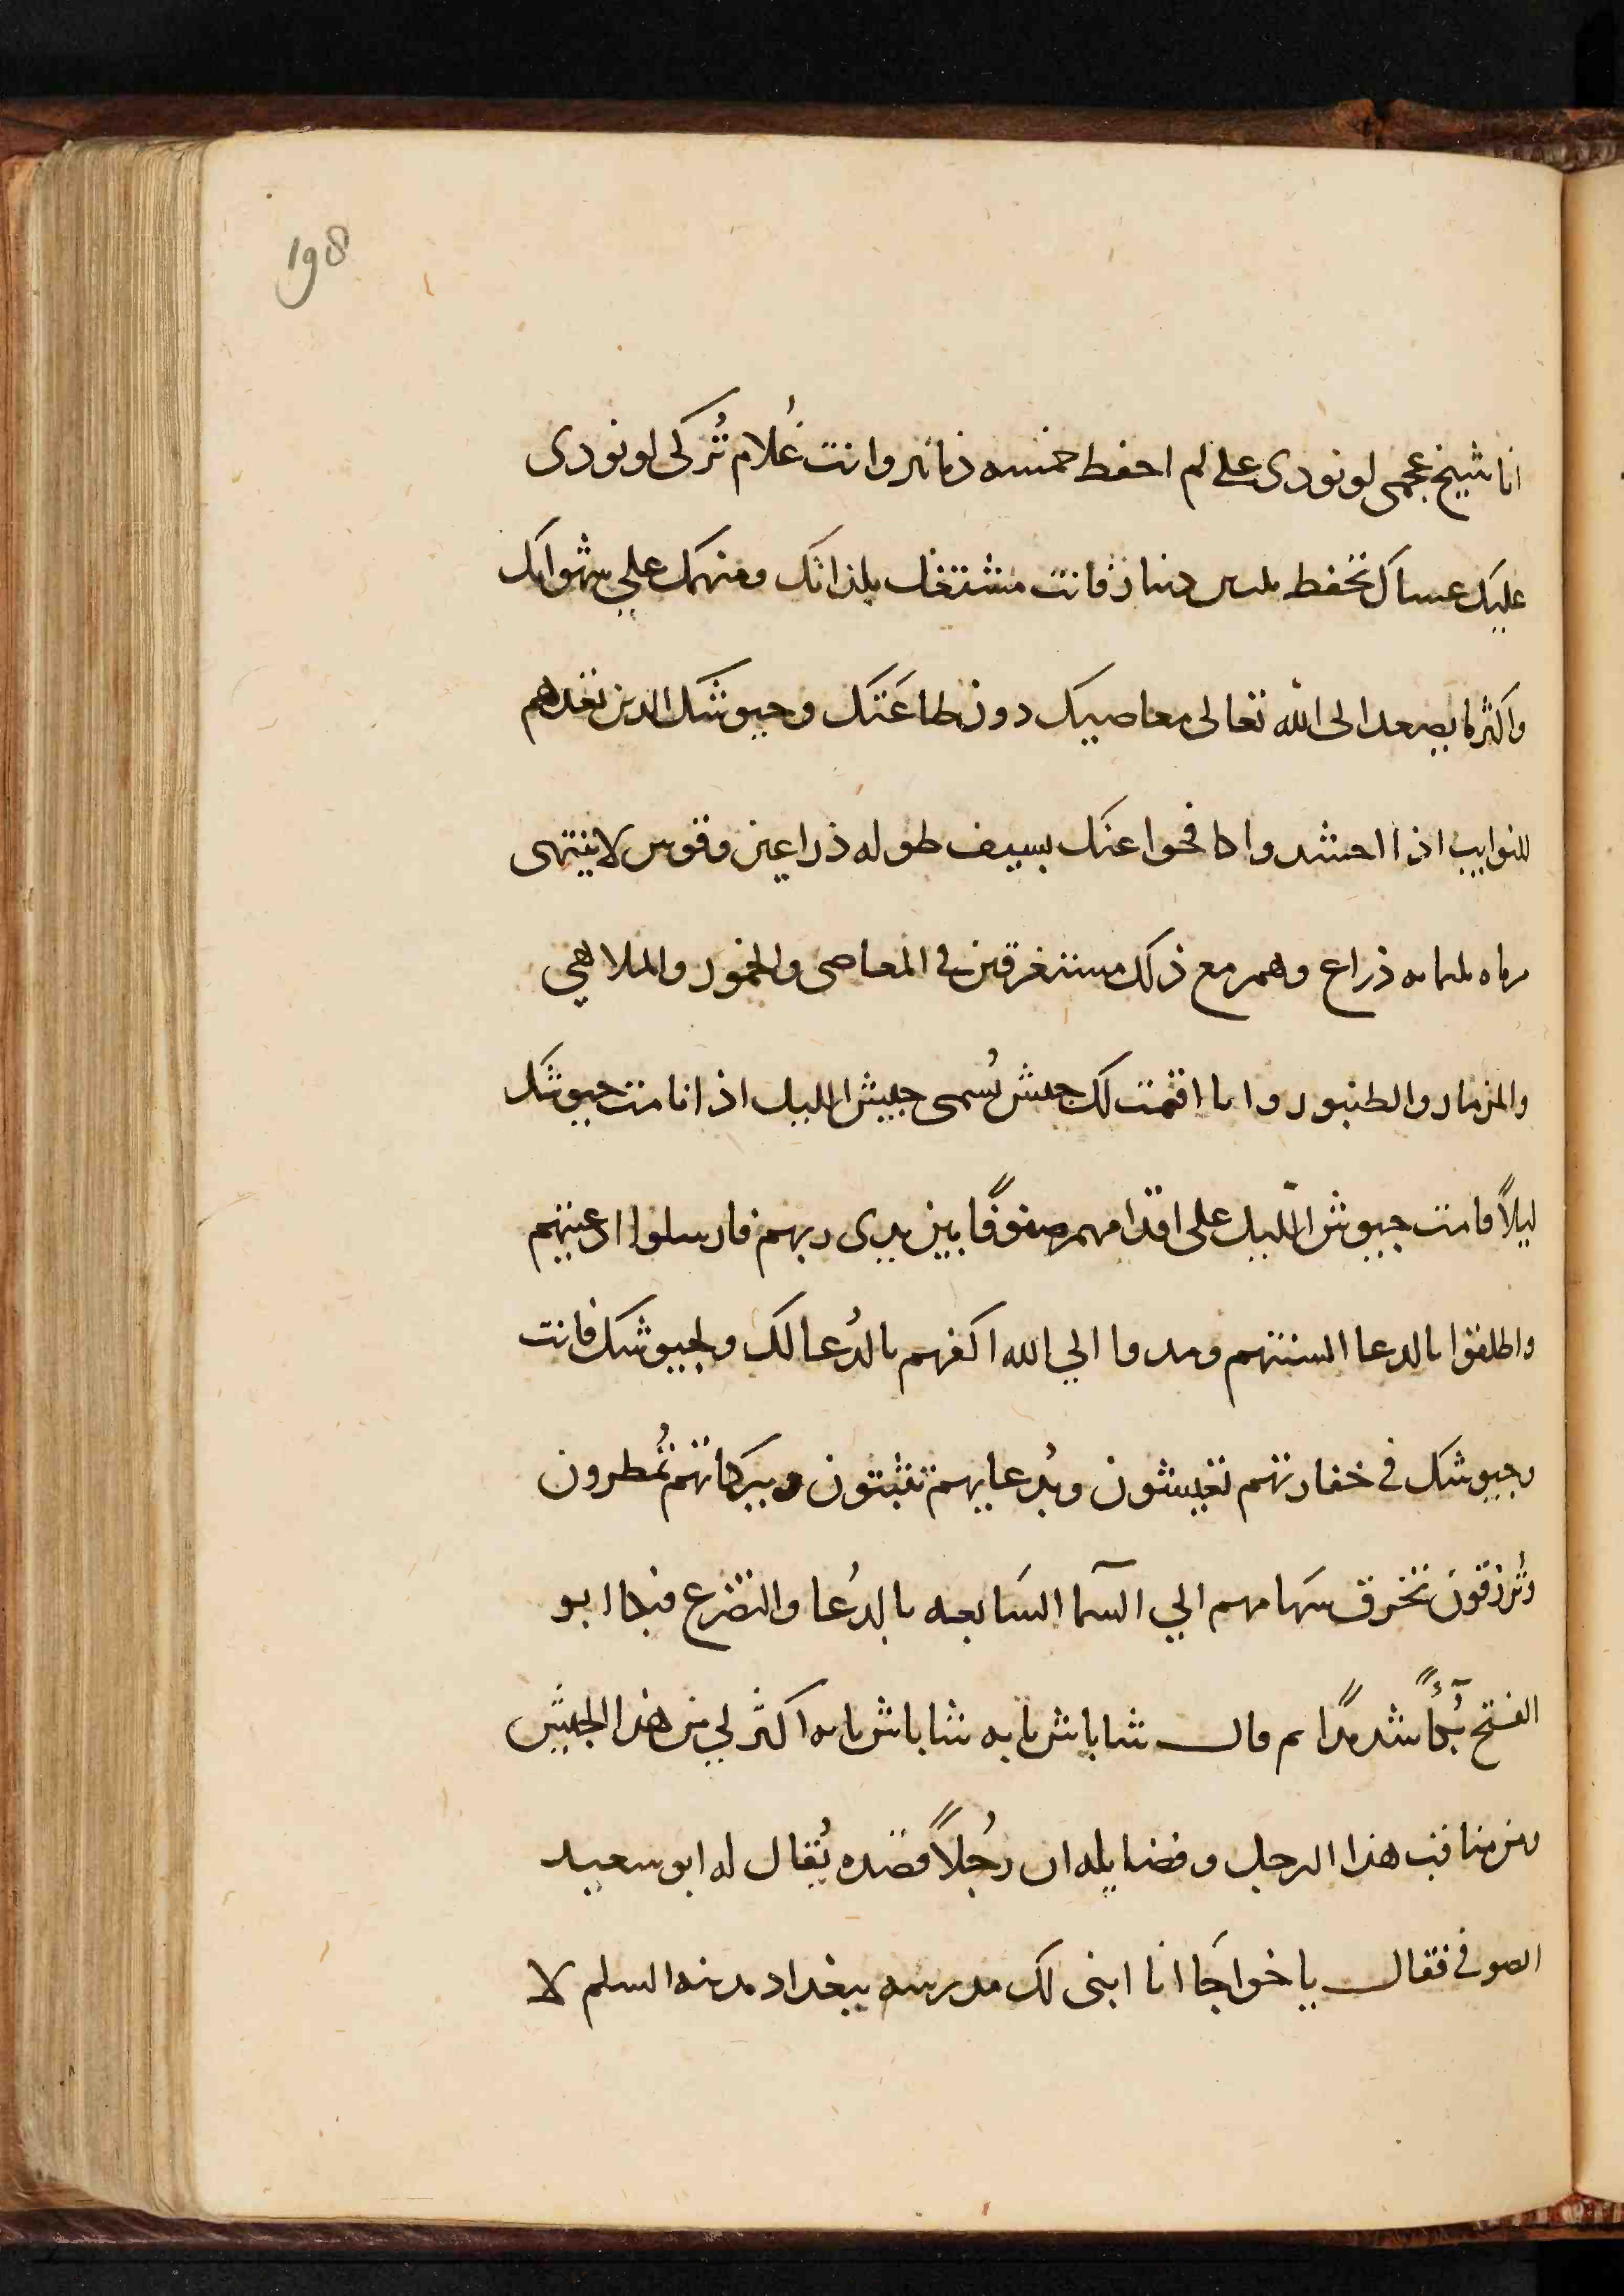 198
انا شيخ عجمى لو نودى على لم احفظ خمسه دنانير وانت غُلام تُركى لو نودى
عليك عساك تحفظ ثلثين دينار فانت مشتغل بلذاتك ومنهمك على شهواتك
واكثر ما يصعد الى الله تعالى معاصيك دون طاعَتَك وجيوشك الدين تعدهم
للنوايب اذا احشدوا كافحوا عنك بسيف طوله ذراعين وقوس لا ينتهى
مرماه ثلثمايه ذراع وهم مع ذلك مستغرقين في المعاصى والخمور والملاهي
والمزمار والطنبور وانا اقمت لك جيش يُسمى جيش الليل اذا نامت جيوشك
ليلاً قامت جيوش اللّيل على اقدامهم صفوفًا بين يدى ربهم فارسلوا ادعيتهم
واطلقوا بالدعا السنتهم ومدوا الي الله اكفهم بالدُعا لك ولجيوشك فانت
وجيوشك في خفارتهم تعيشون وبُدعايهم تثبتون وببركاتهم تُمطرون
وتُرزقون تخرق سهامهم الي السّما السَابعه بالدُعا والتضرع فبكا ابو
الفتح بُكآءً شديدًا ثم قال شاباش يا به شاباش يا به اكثر لي من هذا الجيش
ومن مناقب هذا الرجل وفضايله ان رجُلاً قصده يُقال له ابو سعيد
الصوفي فقال يا خواجَا انا ابنى لك مدرسه ببغداد مدينه السلم لا